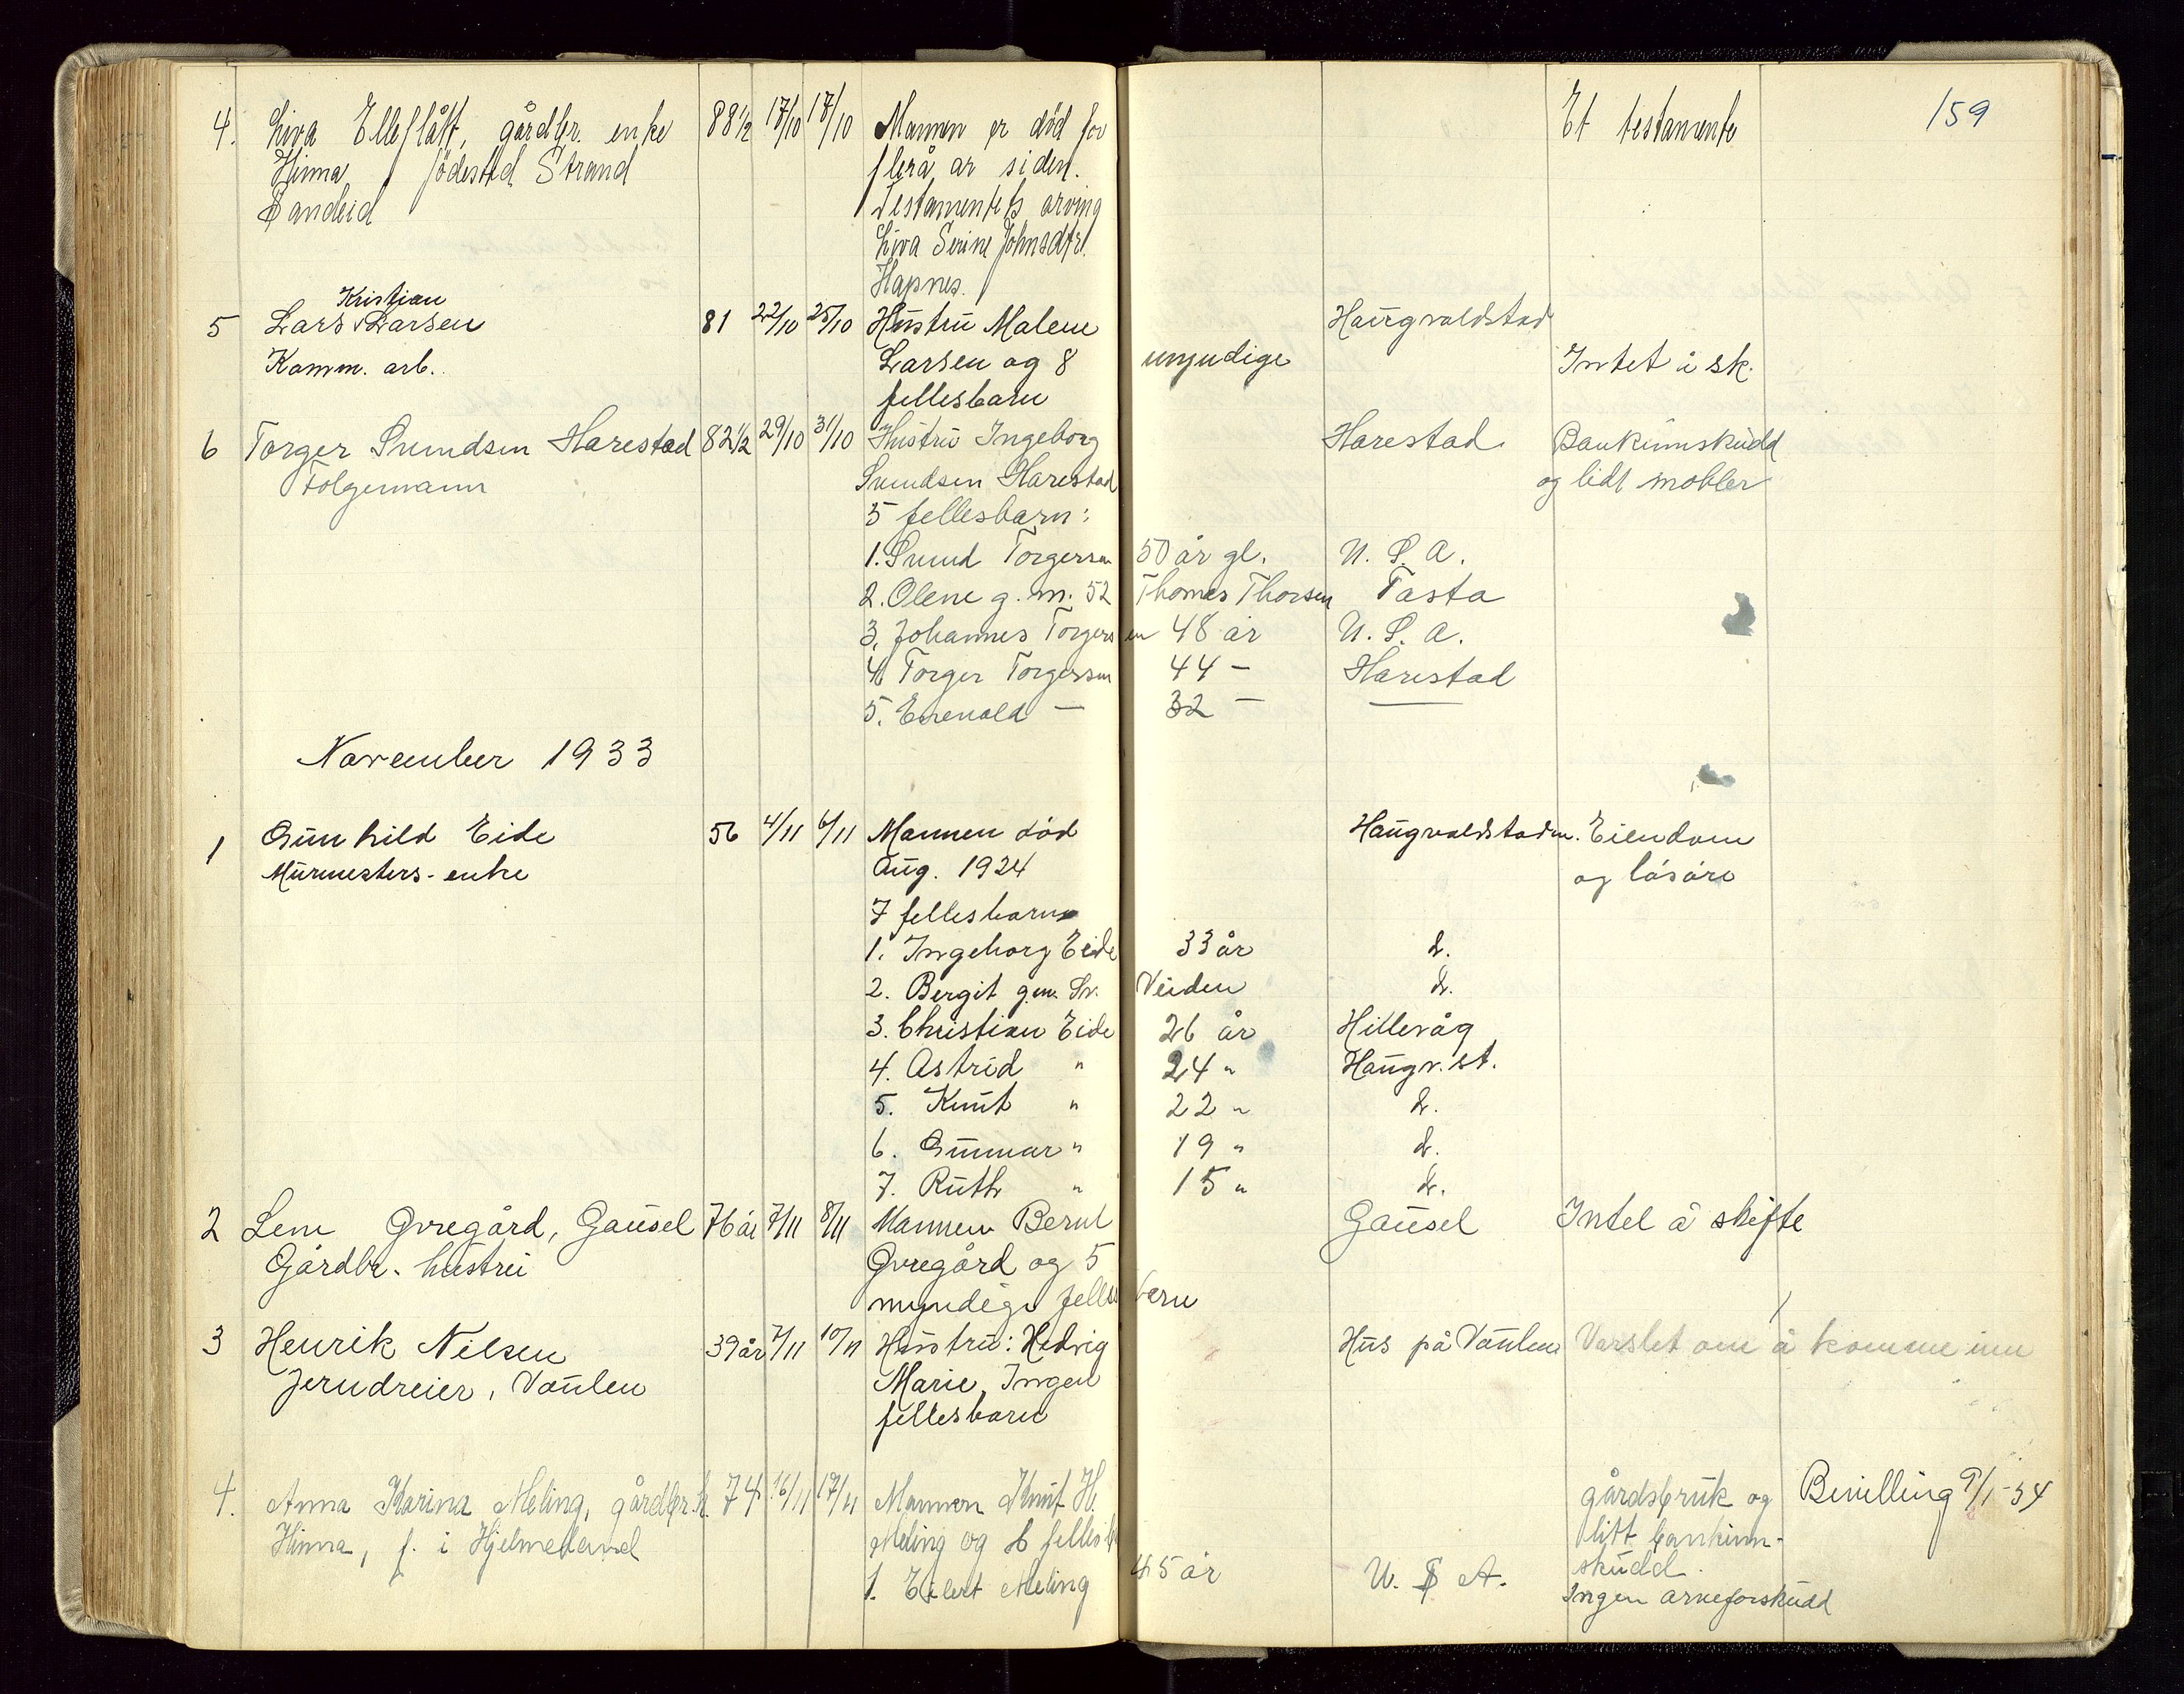 159
4. Liva Elleflått, gårdbr. enke 88½ 17/10 18/10 Mannen er død for Et testamente
Hinna, fødested Strand flerå år siden.
Sandeid Testamentets arving
Liva Serine Johnsdtr.
Hapnes.
Kristian
5 Lars Larsen 81 22/10 25/10 Hustru Malene Haugvaldstad
Komm. arb. Larsen og 8 myndige Intet å sk.
fellesbarn
6 Torger Svendsen Harestad 82½ 29/10 31/10 Hustru Ingeborg Harestad Bankinnskudd
Følgemann Svendsen Harestad og lidt møbler
5 fellesbarn:
1. Svend Torgersen 50 år gl. U. S. A.
2. Olene g. m. 52 Thomas Thorsen Tasta
3. Johannes Torgersen 48 år U. S. A.
4 Torger Torgersen 44 - Harestad
5. Enevald - 32 -
November 1933
1 Gunhild Eide 56 4/11 6/11 Mannen død Haugvaldstadm. Eiendom
Murmesters-enke Aug. 1924 og løsøre
7 fellesbarn
1. Ingeborg Eide 33 år d.
2. Bergit gm. Sv. Veiden d.
3. Christian Eide 26 år Hillevåg
4. Astrid " 24 " Haugv. st.
5. Knut " 22 " d.
6. Gunnar " 19 " d.
7. Ruth " 15 " d.
2 Lene Øvregård, Gausel 76 år 7/11 8/11 Mannen Bernt Gausel Intet å skifte
Gårdbr. hustru Øvregård og 5
myndige fellesbarn
3 Henrik Nilsen 39 år 7/11 10/11 Hustru: Hedvig Hus på Vaulen Varslet om å komme inn
Jerndreier, Vaulen Marie, Ingen
fellesbarn
4. Anna Karina Meling, gårdbr. h. 74 16/11 17/11 Mannen Knut H. gårdsbruk og Bevilling 9/1-34
Hinna, f. i Hjelmeland Meling og 6 fellesb litt bankinn-
skudd.
1. Eilert Meling 45 år U. S A. Ingen arveforskudd